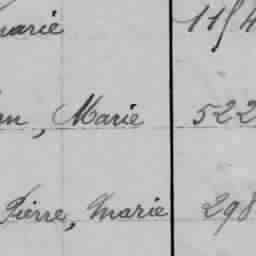 marie 115
, Marie 522
Pierre, Marie 298